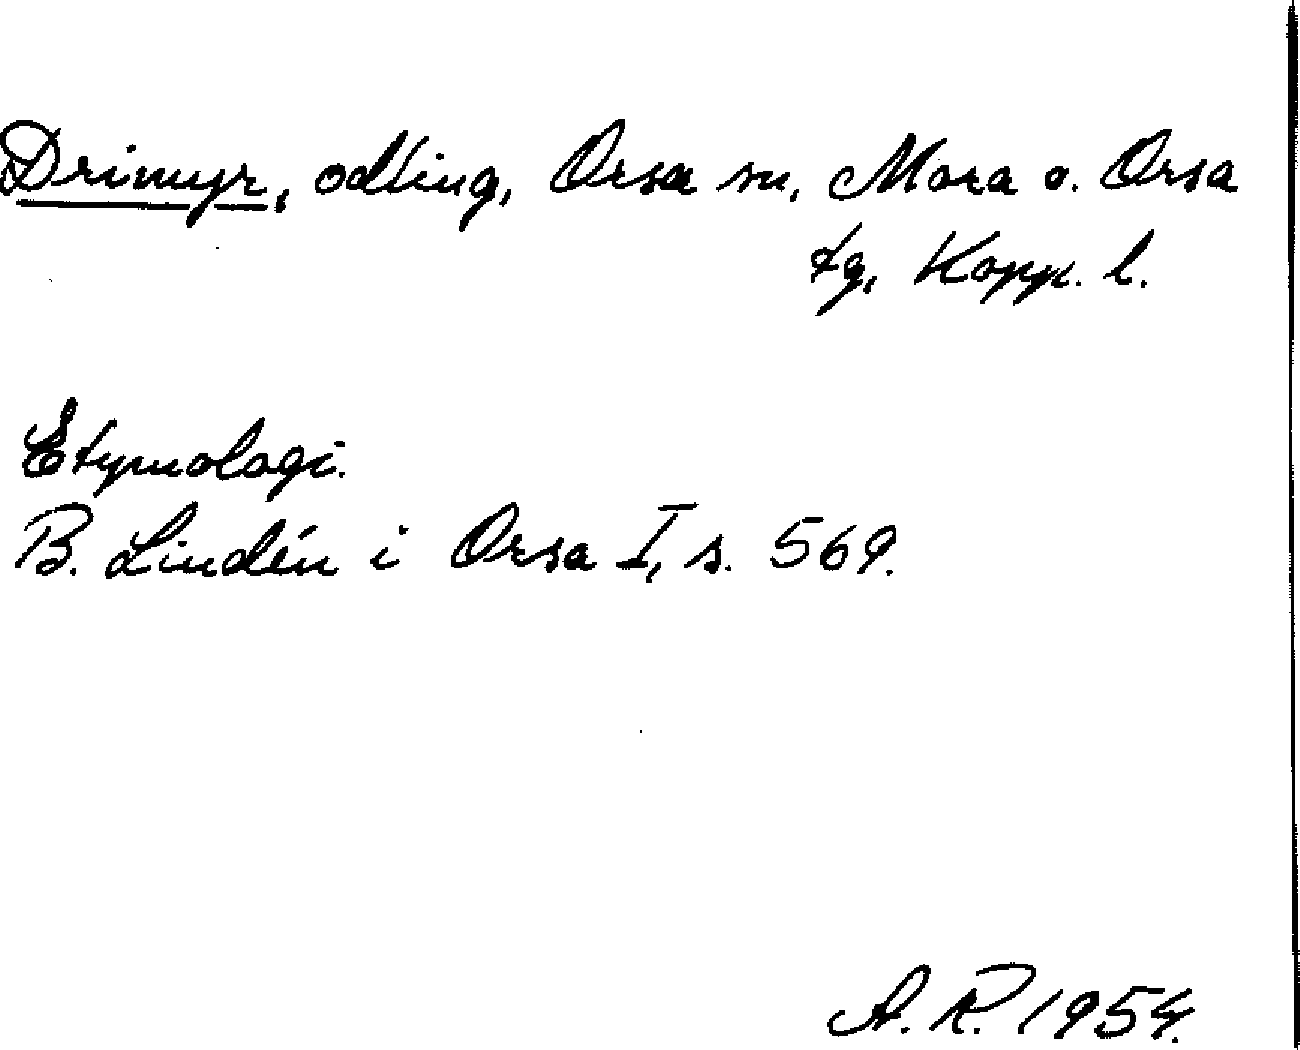 Drimyr, odling, Orsa sn, Mora o. Orsa
tg, Kopp. l.
Etymologi.
B. Lindén i Orsa I, s. 569.
A. R. 1954.